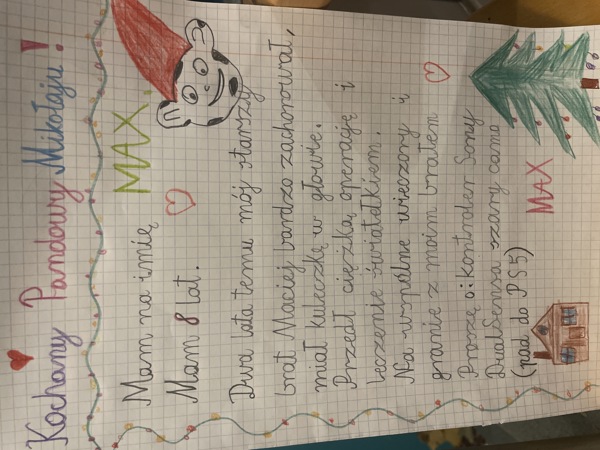 Kochany Pandowy Mikołaju!
Mam na imię MAX.
Mam 8 lat.
Dwa lata temu mój starszy
brat Maciej bardzo zachorował,
miał kuleczkę w głowie.
Przedł ciężką operację i
leczenie światełkiem.
Na wspólne wieczory i
granie z moim bratem
Proszę o: kontroler Sony
DualSensa szary camo
(pad do PS5)
MAX